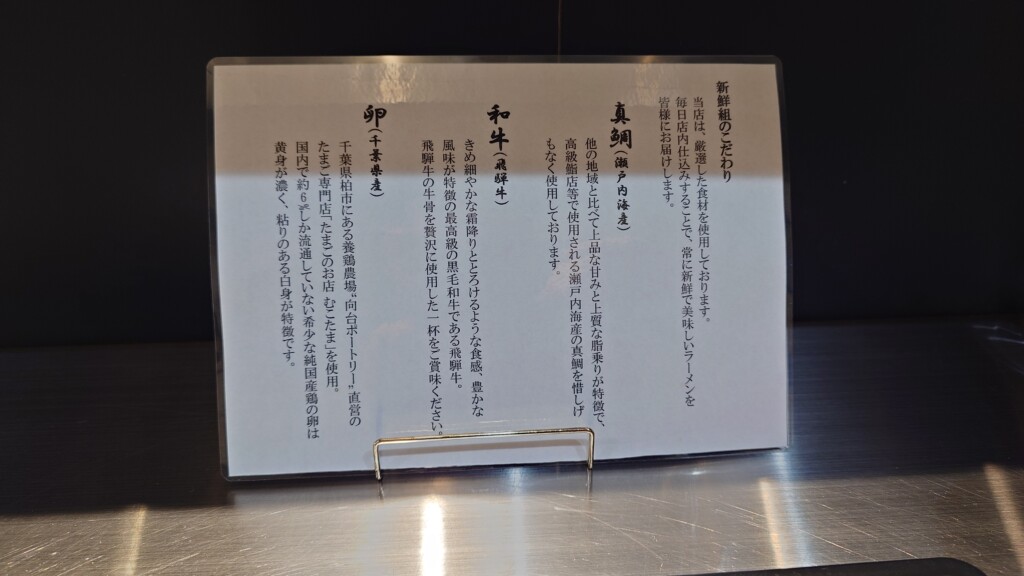 新鮮組のこだわり
当店は、厳選した食材を使用しております。
毎日店内仕込みすることで、常に新鮮で美味しいラーメンを
皆様にお届けします。
真鯛(瀬戸内海産)
他の地域と比べて上品な甘みと上質な脂乗りが特徴で、
高級鮨店等で使用される瀬戸内海産の真鯛を惜しげ
もなく使用しております。
和牛(飛騨牛)
きめ細やかな霜降りととろけるような食感、豊かな
風味が特徴の最高級の黒毛和牛である飛騨牛。
飛騨牛の牛骨を贅沢に使用した一杯をご賞味ください。
卵(千葉県産)
千葉県柏市にある養鶏農場“向台ポートリー”直営の
たまご専門店「たまごのお店 むこたま」を使用。
国内で約6%しか流通していない希少な純国産鶏の卵は
黄身が濃く、粘りのある白身が特徴です。